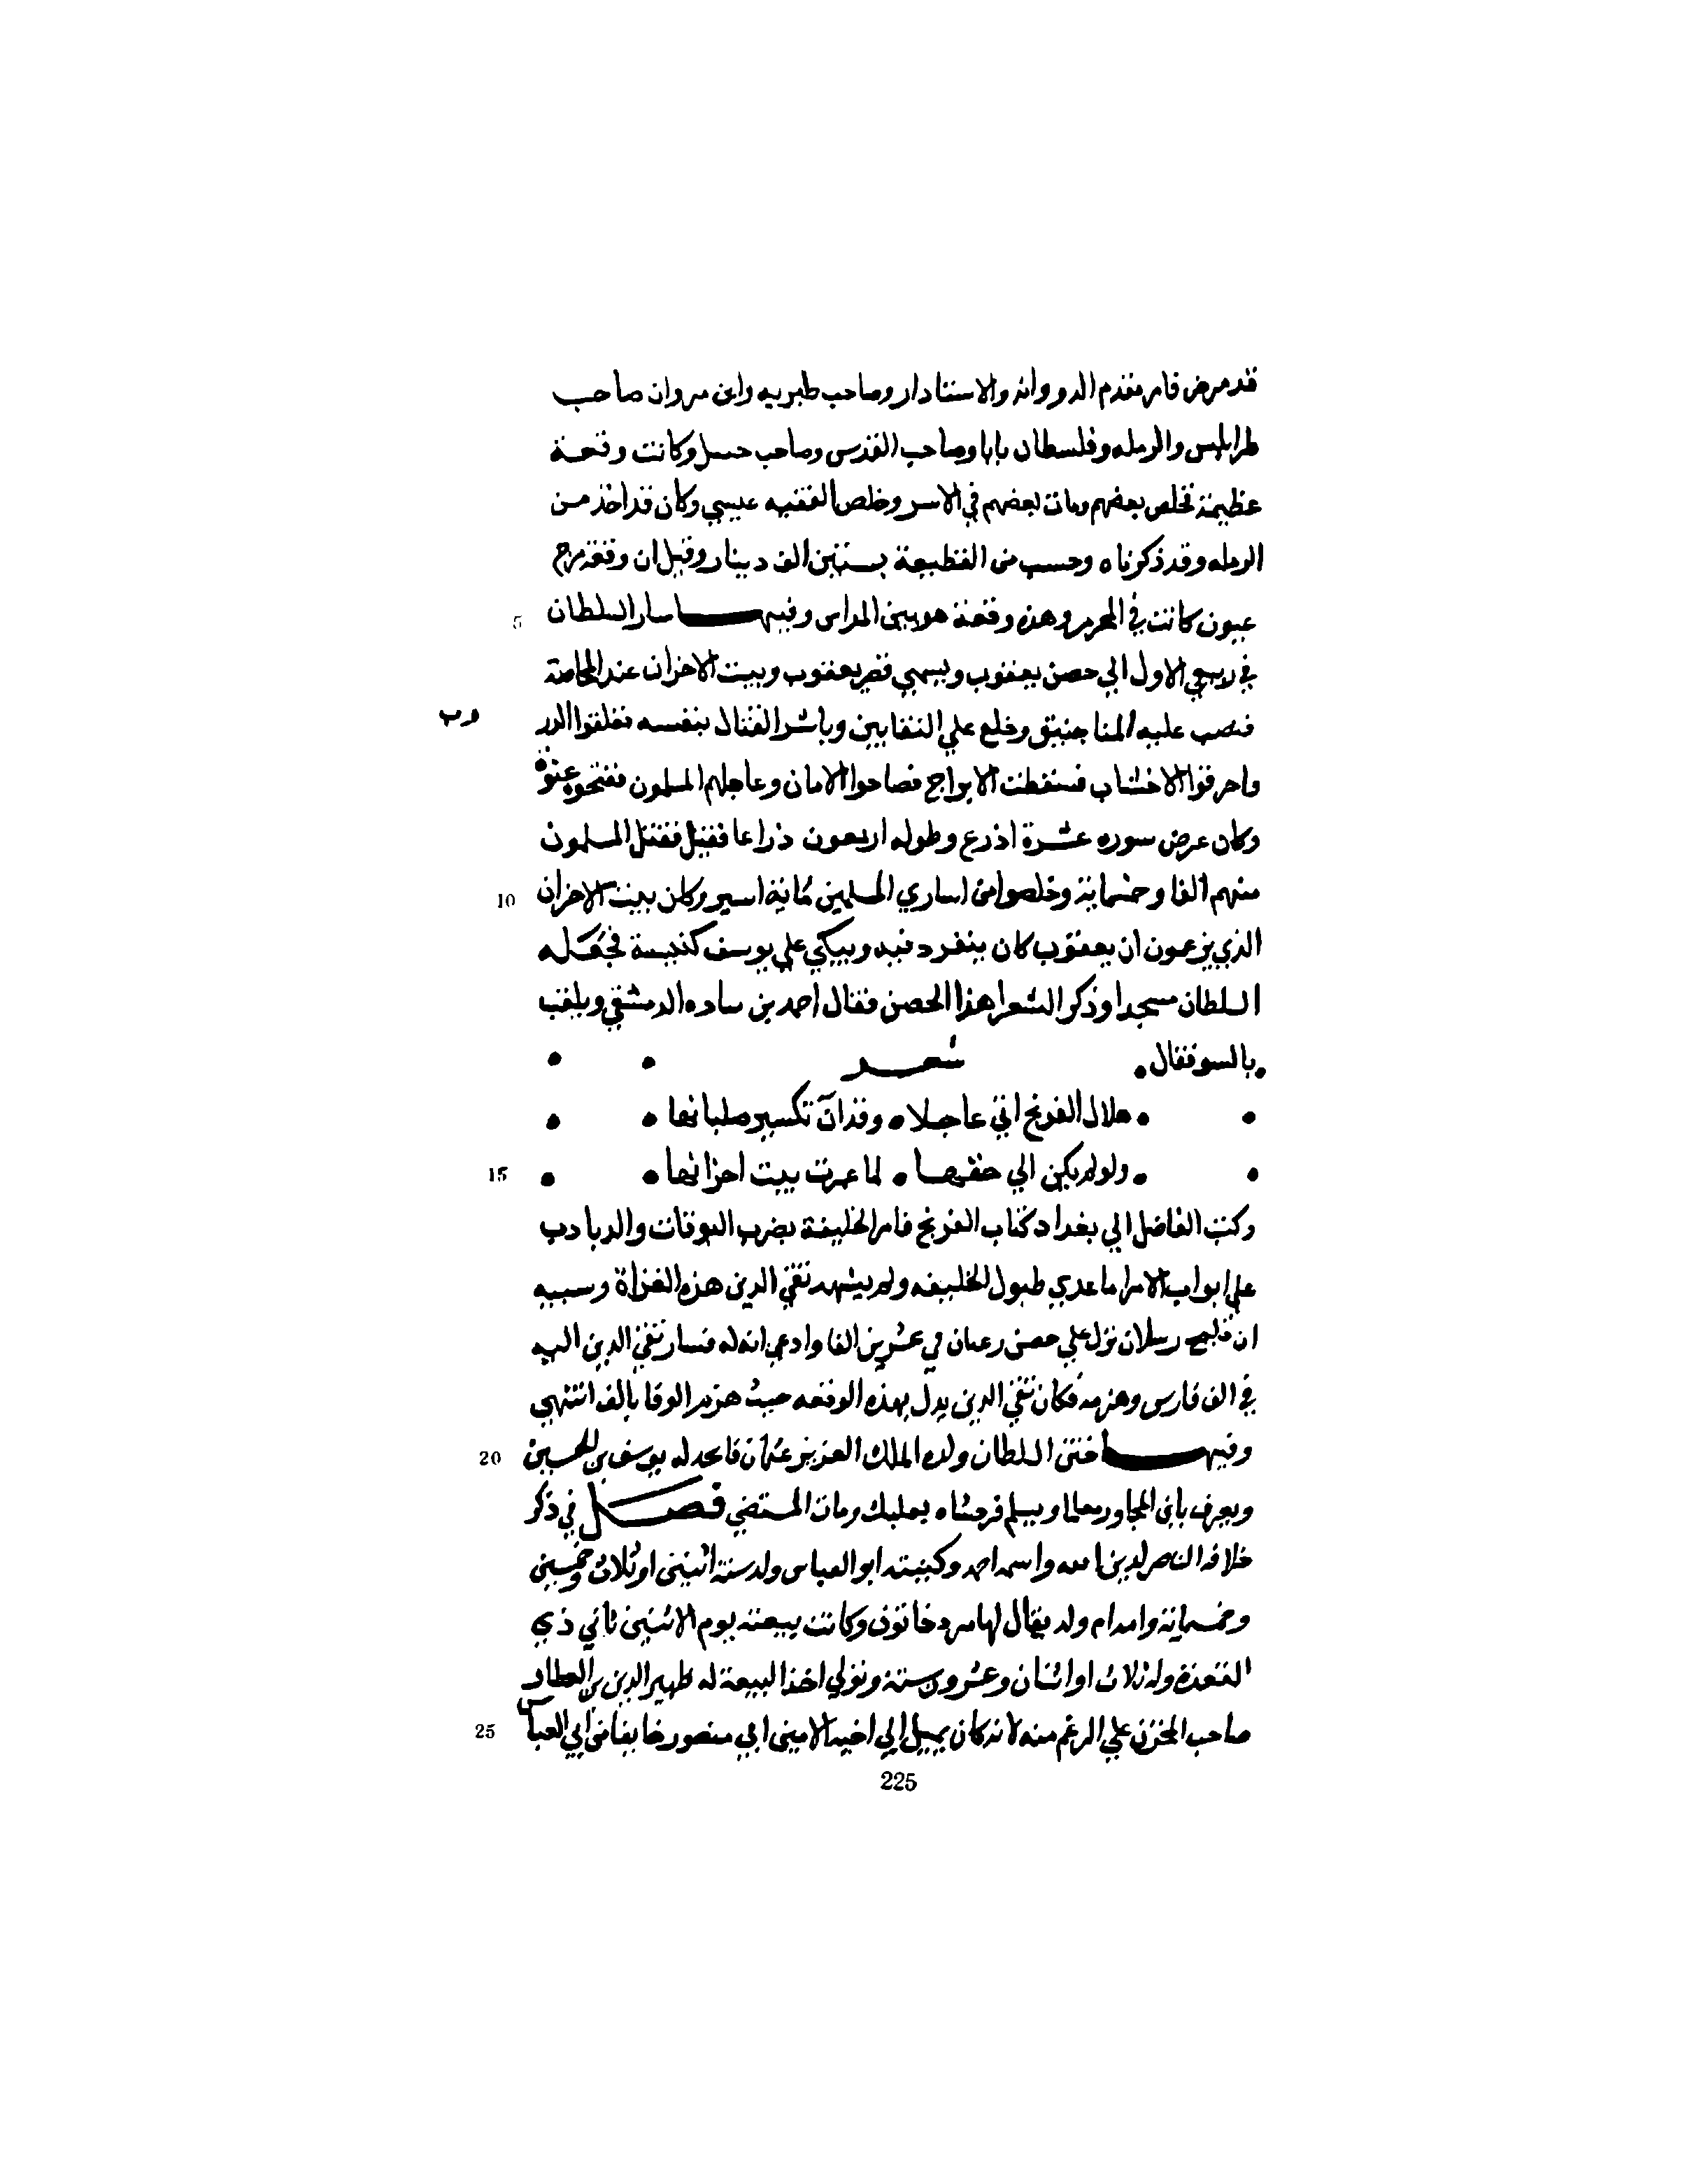 قد مرض فامر مقدم الدوواىه والاستنادار وصاحب طبريه وابن مروان صاحب
طرابلس والرمله وفلسطان بابا وصاحب القدس وصاحب حسل وكانت وقعة
عظيمة فخلص بعضهم ومات بعضهم في الاسر وخلص الفقيه عيسي وكان قد اخذ من
الرمله وقد ذكرناه وحسب من القطيعة بستين الف دينار وقيل ان وقعة مرج
عيون كانت في المحرم وهذه وقعة هو بين المراس وفيها سار السلطان 5
في ربيع الاول الي حصن يعقوب ويسمي قصر يعقوب وبيت الاحزان عند المخاضة
فنصب عليه المناجنيق وخلع علي النقابين وباشر القتال بنفسه فعلقوا الدر
وب
واحرقوا الاخشاب فسقطت الابراج فصاحوا الامان وعاجلهم المسلمون ففتحوه عنوة
وكان عرض سوره عشرة اذرع وطوله اربعون ذراعا فقتل فقتل المسلمون
منهم الفا وخمسماية وخلصوا من اساري المسلمين ماية اسير وكان بيت الاحزان 10
الذي يزعمون ان يعقوب كان ينفرد فيه ويبكي علي يوسف كنيسة فجعله
السلطان مسجدا وذكر الشعرا هذا الحصن فقال احمد بن ساده الدمشقي ويلقب
بالسو فقال شعر
هلال الفرنج اتي عاجلا وقد ان تكسير صلبانها
ولو لم يكن الي حتفها لما عمرت بيت احزانها 15
وكتب الفاضل الي بغداد كتاب الفرنج فامر الخليفة بضرب البوقات والدبادب
علي ابواب الامرا ما عدي طبول الخليفه ولم يشهد تقي الدين هذه الغزاة وسببه
ان قليج رسلان نزل علي حصن رعبان في عشرين الفا وادعي انه له فسار تقي الدين اليه
في الف فارس وهزمه فكان تقي الدين يدل بهذه الوقعه حيث هزم الوفا بالف انتهي
وفيها ختن السلطان ولده الملك العزيز عثمان فاتخذ له يوسف بن الحسين 20
ويعرف بابن المجاور معلما ويسلم فرخشاه بعلبك ومات المستضي فصل في ذكر
خلافة الناصر لدين الله واسمه احمد وكنيته ابو العباس ولد سنة اثنين او ثلاث وخمسين
وخمسماية وامه ام ولد يقال لها مرد خاتون وكانت بيعته يوم الاثنين ثاني ذي
القعدة وله ثلاث او اثنان وعشرون سنة وتولي اخذ البيعة له ظهير الدين بن العطار
صاحب المخزن علي الرغم منه لانه كان يميل الي اخيه الامين ابي منصور خايفا من ابي العباس 25
225